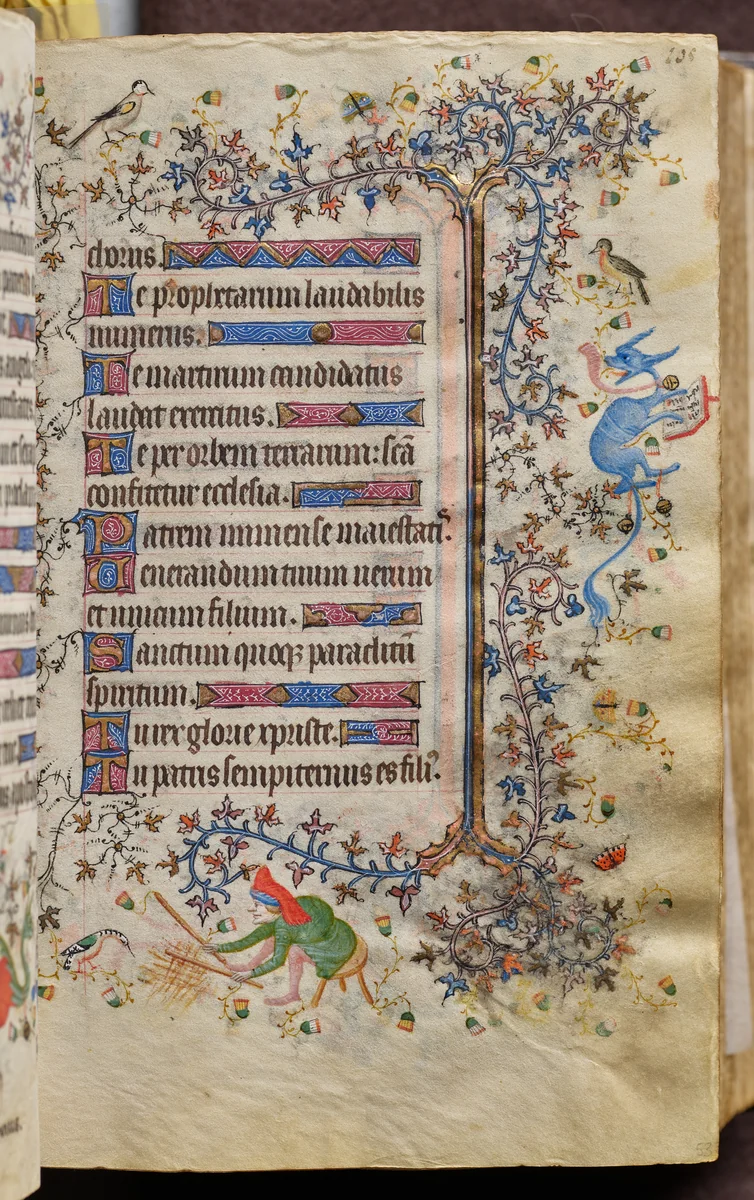 chorus.
Te prophetarum laudabilis
numerus.
Te martirum candidatus
laudat exercitus.
Te per orbem terrarum: scā
confitetur ecclesia.
Patrem immense maiestatis.
Uenerandum tuum uerum
et unicum filium.
Sanctum quoqꝫ paraclitū
spiritum.
Tu rex glorie xpriste.
Tu patris sempiternus es fili⁹.